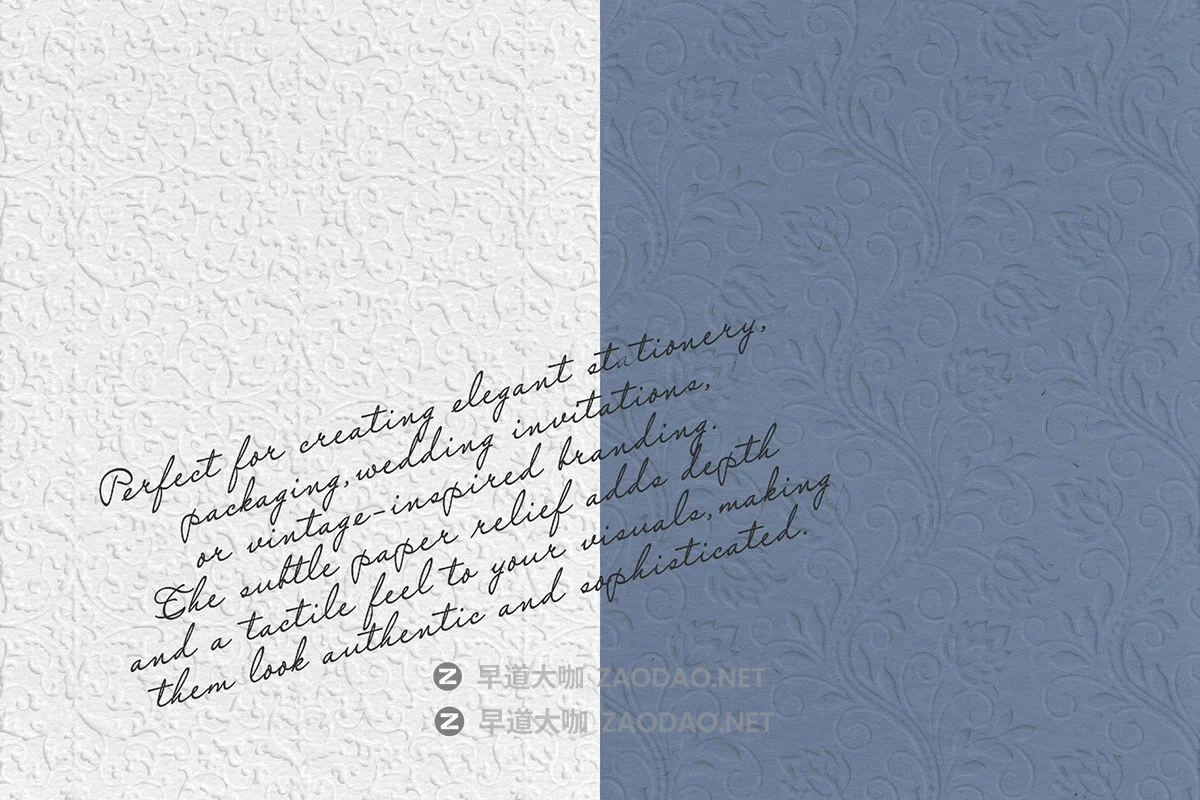 Perfect for creating elegant stationery,
packaging, wedding invitations,
or vintage-inspired branding.
The subtle paper relief adds depth
and a tactile feel to your visuals, making
them look authentic and sophisticated.
Z 早道大咖 ZAODAO.NET
Z 早道大咖 ZAODAO.NET